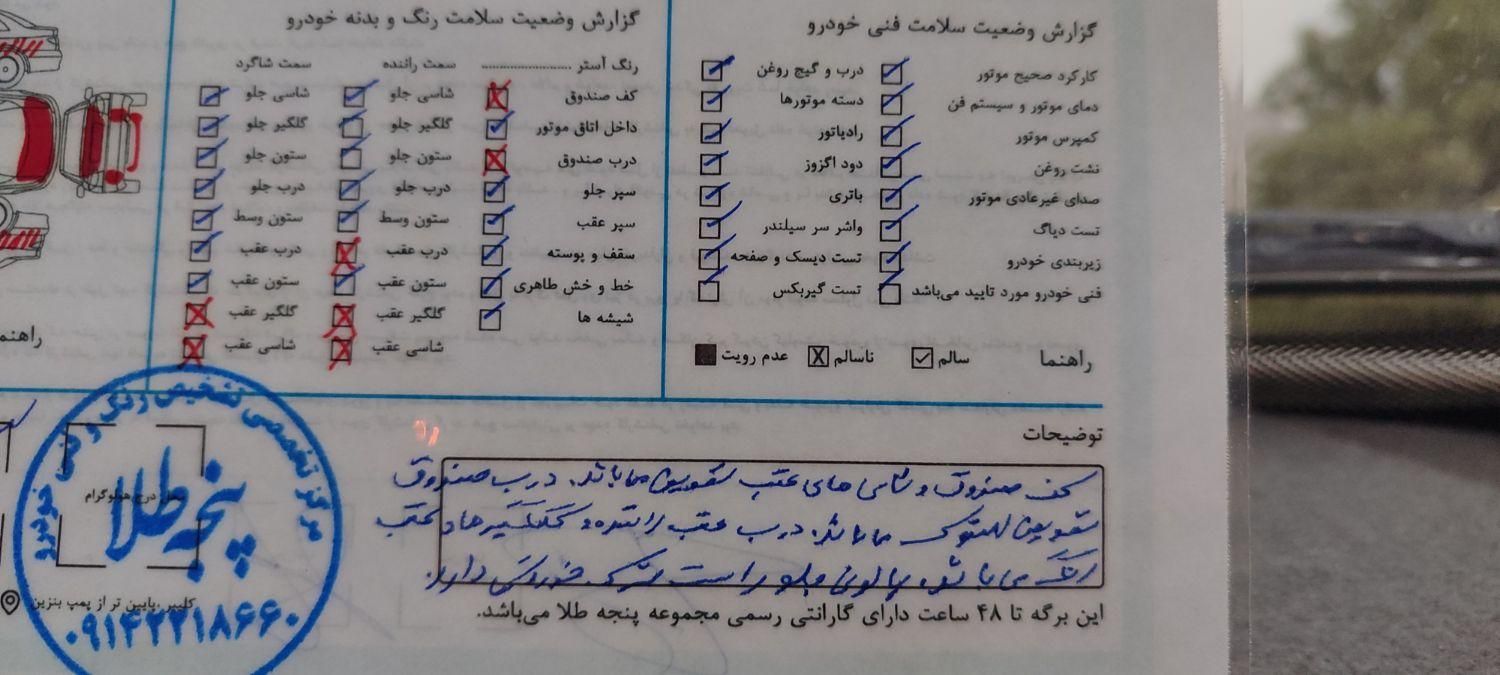 گزارش وضعیت سلامت فنی خودرو
کارکرد صحیح موتور
درب و گیج روغن
دمای موتور و سیستم فن
دسته موتورها
کمپرس موتور
رادیاتور
نشت روغن
دود اگزوز
صدای غیرعادی موتور
باتری
تست دیاگ
واشر سر سیلندر
زیربندی خودرو
تست دیسک و صفحه
فنی خودرو مورد تایید می‌باشد
تست گیربکس
راهنما
سالم
ناسالم
عدم رویت
گزارش وضعیت سلامت رنگ و بدنه خودرو
رنگ آستر
سمت راننده
سمت شاگرد
کف صندوق
شاسی جلو
شاسی جلو
داخل اتاق موتور
گلگیر جلو
گلگیر جلو
درب صندوق
ستون جلو
ستون جلو
سپر جلو
درب جلو
درب جلو
سپر عقب
ستون وسط
ستون وسط
سقف و پوسته
درب عقب
درب عقب
خط و خش ظاهری
ستون عقب
ستون عقب
شیشه ها
گلگیر عقب
گلگیر عقب
شاسی عقب
شاسی عقب
راهنم
توضیحات
کف صندوق و شاسی های عقب تعویض میباشد. درب صندوق
تعویض میباشد. درب عقب راننده و گلگیرها عقب
رنگ می باشد. جلو راست ترک خوردگی دارد.
این برگه تا ۴۸ ساعت دارای گارانتی رسمی مجموعه پنجه طلا می‌باشد.
مرکز تخصصی تشخیص رنگ و فنی خودرو
محل درج هولوگرام
پنجه طلا
کلیبر .پایین تر از پمپ بنزین
۰۹۱۴۲۲۱۸۶۶۰